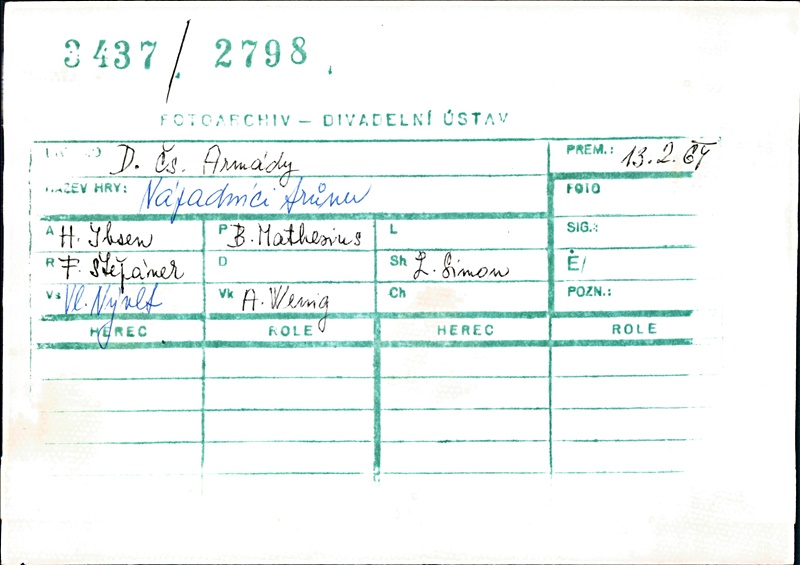 3437/2798.
FOTOARCHIV – DIVADELNÍ ÚSTAV
D. Čs. Armády PREM.: 13.2.
NÁZEV HRY: Nápadníci trůnu FOTO
A H. Ibsen P B. Mathesius L SIG.:
R F. Štěpánek D Sh Z. Šimon Ė/
Vs Vl. Nývlt Vk A. Wenig Ch POZN.:
HEREC ROLE HEREC ROLE